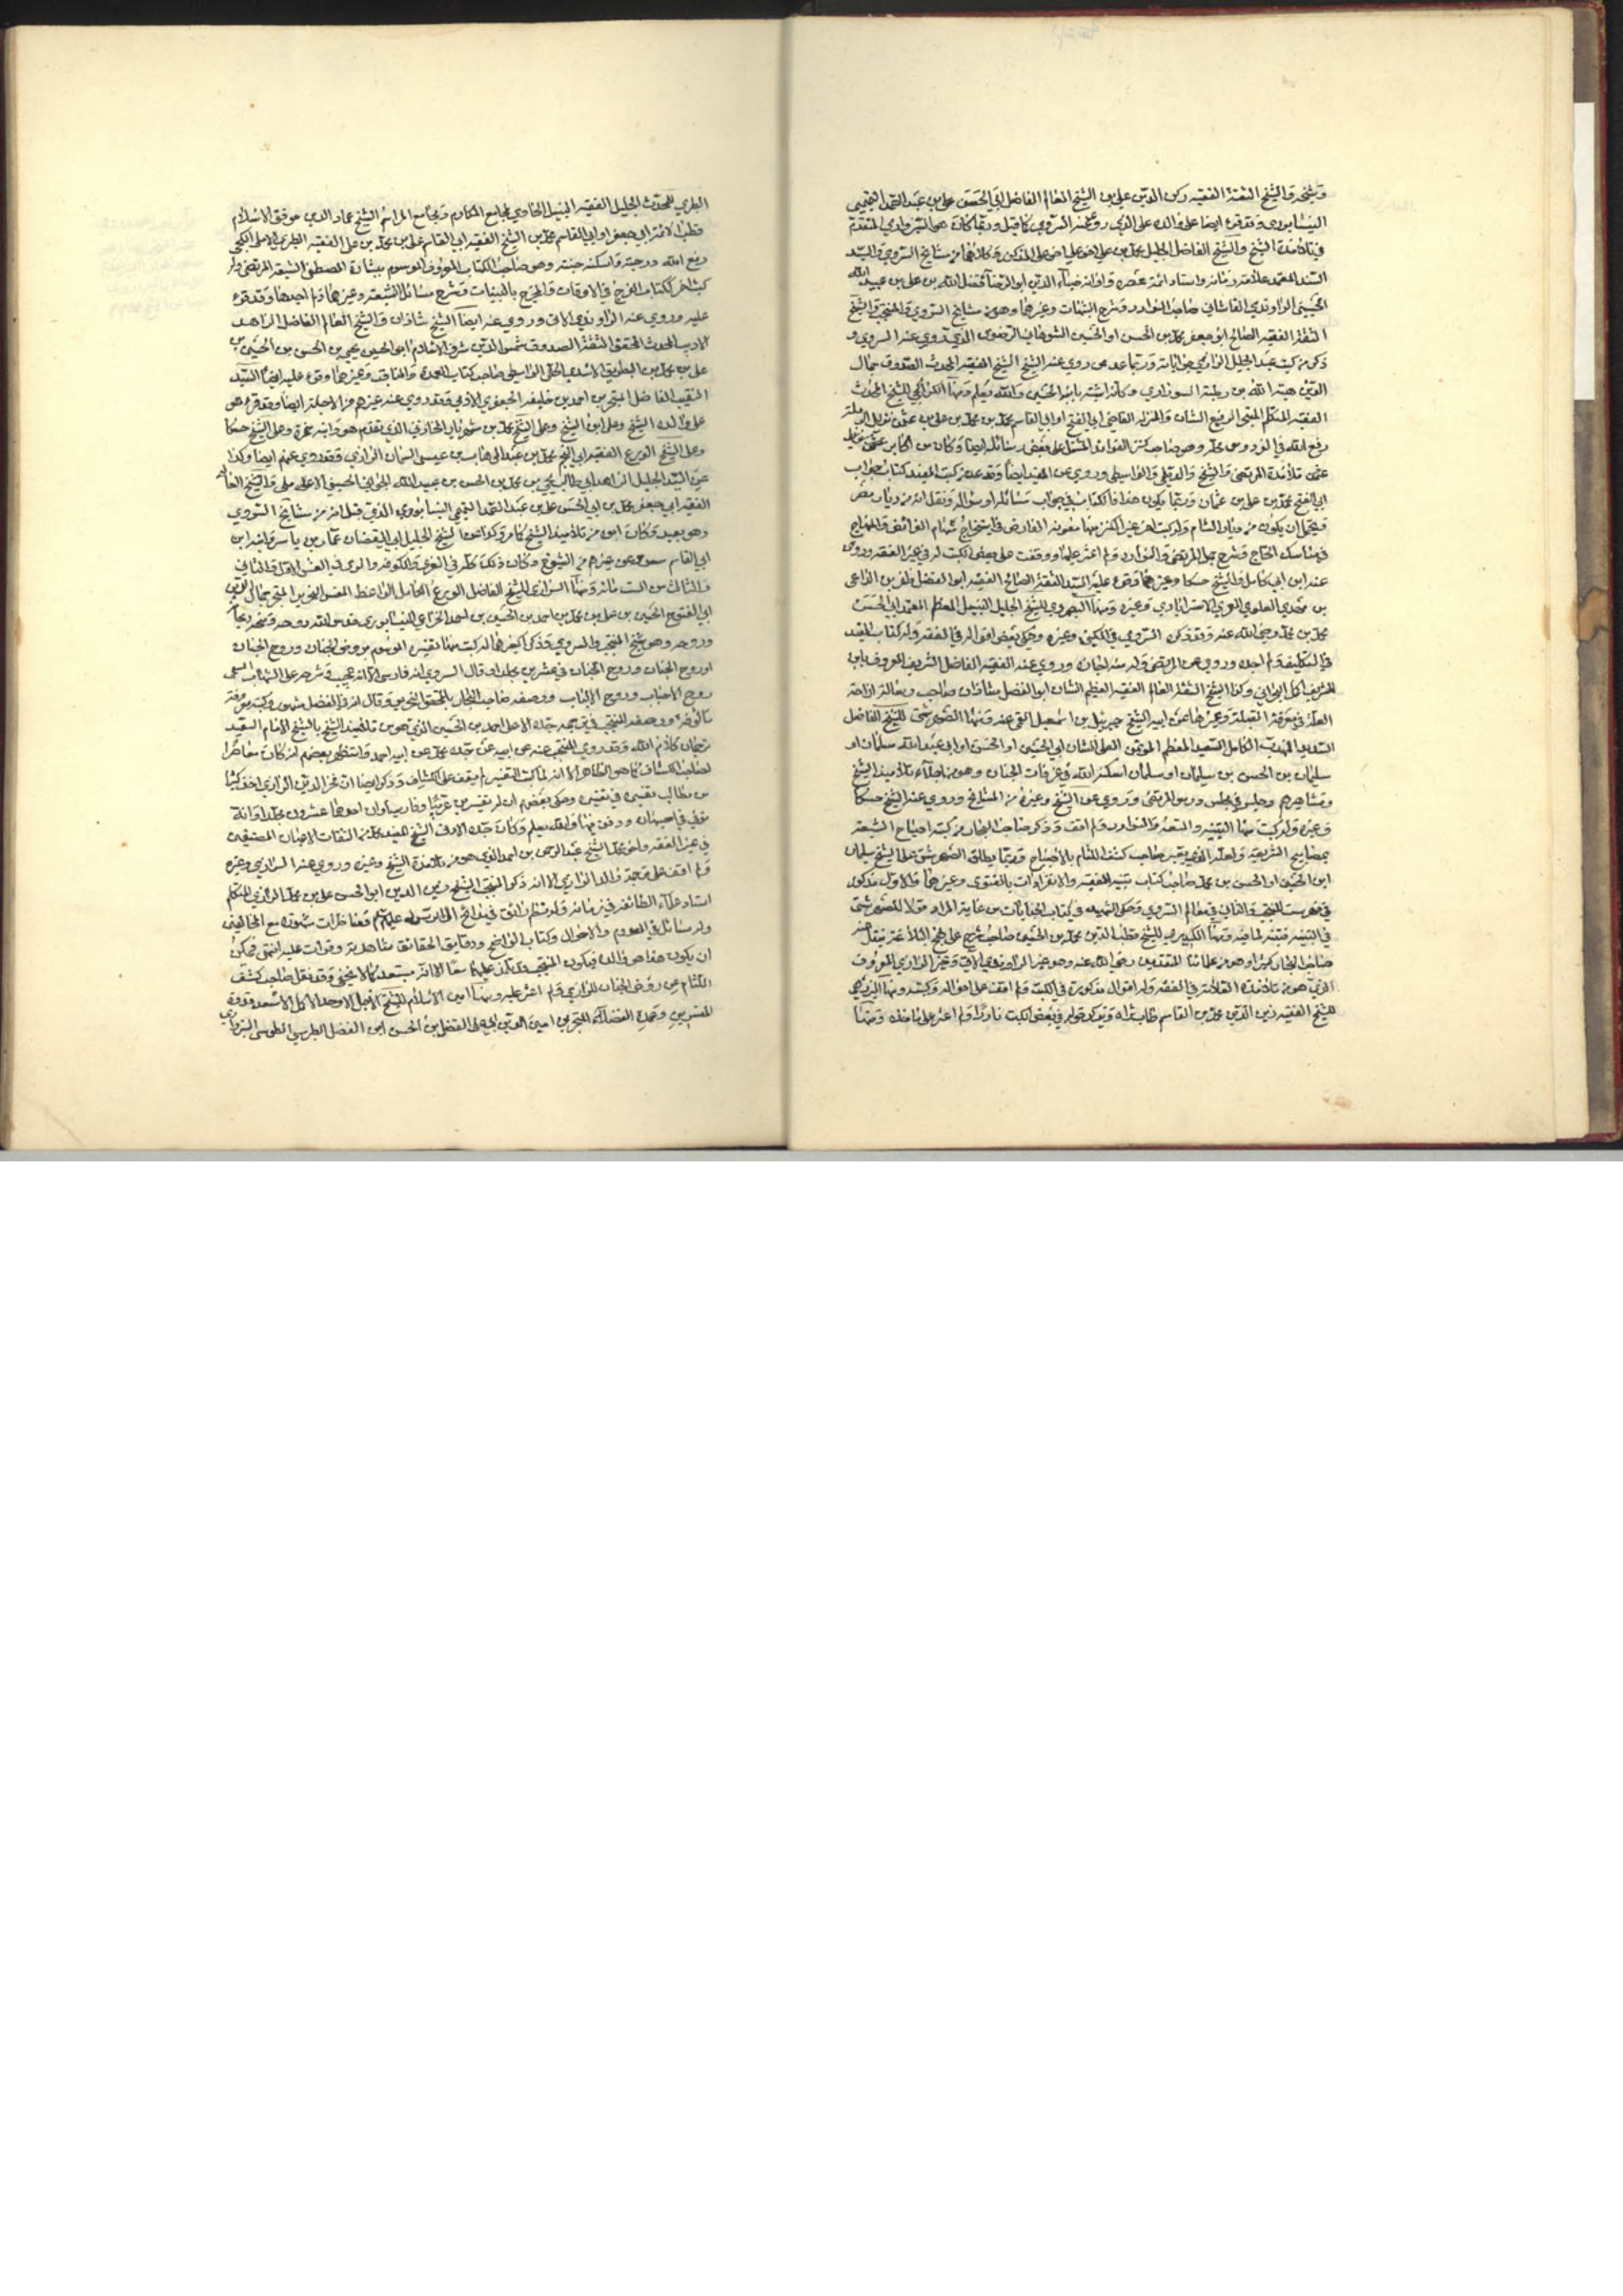 وشيخه والشيخ الثقة الفقيه ركن الدين علي بن الشيخ العالم الفاضل ابي الحسن علي بن عبد الصمد التميمي
النيسابوري وقد قرء ايضا على والده على الذي روى عنه السروي كما قيل وربما كان هو السبزواري المتقدم
في تلامذة الشيخ والشيخ الفاضل الجليل محمد بن علي اخو علي اخو علي المذكور وكلاهما من مشايخ السروي والسيد
السند المعتمد علامة زمانه واستاد ائمة عصره واوانه ضياء الدين ابو الرضا فضل الله بن علي بن عبيد الله
الحسيني الراوندي القاشاني صاحب النوادر وشرح الشهاب وغيرهما وهو من مشايخ السروي والمنتجب والشيخ
الثقة الفقيه الصالح ابو جعفر محمد بن الحسن او الحسين الشوهاني الرضوي الذي روى عنه السروي و
ذكر من كتب عبد الجليل الرازي وربما عد ممن روى عنه الشيخ الشيخ الفقيه المحدث الصدوق جمال
الدين هبة الله بن رطبة السوراوي وكانه اشتبه بابنه الحسين والله يعلم ومنها الكراجكي للشيخ المحدث
الفقيه المتكلم المتبحر الرفيع الشان والمنزلة القاضي ابي الفتح او ابي القاسم محمد بن محمد بن علي بن عثمان نزيل الرملة
رفع الله في الفردوس محله وهو صاحب كنز الفوائد المشتمل على بعض رسائله ايضا وكان من اكابر
تلامذة المرتضى والشيخ والديلمي والواسطي وروى عن المفيد ايضا وقد عد من كتب المفيد كتاب جواب
ابي الفتح محمد بن علي بن عثمان وربما يكون هذا فالكتاب في جواب مسائله او سؤاله ونقل انه من ديار مصر
فيحتمل ان يكون من ديار الشام وله كتب اخر غير الكنز منها معونة الفارض في استخراج سهام الفرائض والمنهاج
في مناسك الحاج وشرح جمل المرتضى والنوادر ولم اعثر عليها ووقفت على بعض الكتب له في غير الفقه وروى
عنه ابن ابي كامل والشيخ حسكا وغيرهما وقرء عليه السيد الثقة الصالح الفقيه ابو الفضل ظفر بن الداعي
بن مهدي العلوي العمري الاسترابادي وغيره ومنها البصروي للشيخ الجليل النبيل المعظم المعتمد ابي الحسن
محمد بن محمد رضي الله عنه وقد ذكره السروي في الكنى وغيره وحكى بعض اقواله في الفقه وله كتاب المفيد
في التكليف ولم اجده وروى عن المرتضى وله منه اجازة وروى عنه الفقيه الفاضل الشريف المعروف بابن
الشريف اكمل البحراني وكذا الشيخ الثقة العالم الفقيه العظيم الشان ابو الفضل شاذان صاحب رسالة ازاحة
العلة في معرفة القبلة وغيرها عن ابيه الشيخ جبرئيل بن اسمعيل القمي عنه ومنها الصهرشتي للشيخ الفاضل
السديد المهذب الكامل السعيد المعظم الموثق العلي الشان ابي الحسين او الحسن او ابي عبد الله سلمان او
سليمان بن الحسن بن سليمان او سلمان اسكنه الله في غرفات الجنان وهو من اجلاء تلاميذ الشيخ
ومشاهيرهم وجلس في مجلس درس المرتضى وروى عن الشيخ وغيره من المشايخ وروى عنه الشيخ حسكا
وغيره وله كتب منها التنبيه والمتعة والنوادر ولم اقف وذكر صاحب البحار من كتبه اصباح الشيعة
بمصابيح الشريعة ولعله الذي يعبر صاحب كشف اللثام بالاصباح وربما يطلق الصهرشتي على الشيخ سليمان
ابن الحسين او الحسن بن محمد صاحب كتاب تنبيه الفقيه والانفرادات بالفتوى وغيرهما والاول مذكور
في فهرست المنتجب والثاني في معالم السروي وحكى الشهيد في كتاب الجنايات من غاية المراد قولا للصهرشتي
في التنبيه فتنبه لما فيه ومنها الكيدري للشيخ قطب الدين محمد بن الحسين صاحب شرح على نهج البلاغة ينقل عنه
صاحب البحار كثيرا وهو من علمائنا المتقدمين رضي الله عنه وهو غير الراوندي الاتي وغير الرازي المعروف
الذي هو من تلامذة العلامة في الفقه وله اقوال مذكورة في الكتب ولم اقف على احواله وكتبه ومنها البرزهي
للشيخ الفقيه زين الدين محمد بن القاسم طاب ثراه ويذكر قوله في بعض الكتب نادرا ولم اعثر على ماخذه ومنها
الطبري للمحدث الجليل الفقيه النبيل الحاوي لمجامع المكارم وجامع المراسم الشيخ عماد الدين موفق الاسلام
قطب الائمة ابي جعفر او ابي القاسم محمد بن الشيخ الفقيه ابي القاسم علي بن محمد بن علي الفقيه الطبري الاملي الكجي
رفع الله درجته واسكنه جنته وهو صاحب الكتاب المعروف الموسوم ببشارة المصطفى لشيعة المرتضى وله
كتب اخر ككتاب الفرج في الاوقات والمخرج بالبينات وشرح مسائل الذريعة وغيرهما ولم اجدها وقد قرء
عليه وروى عنه الراوندي الاتي وروى عنه ايضا الشيخ شاذان والشيخ العالم الفاضل الزاهد
الاديب المحدث المحقق الثقة الصدوق شمس الدين شرف الاسلام ابو الحسين يحيى بن الحسن بن الحسين بن
علي بن محمد بن البطريق الاسدي الحلي الواسطي صاحب كتاب العمدة والمناقب وغيرهما وقرء عليه ايضا السيد
النقيب الفاضل المتبحر بن احمد بن خليفة الجعفري الادمي وقد روى عنه غيرهم من الاجلة ايضا وقد قرء هو
على والده الشيخ وعلى ابن الشيخ وعلى الشيخ محمد بن شهريار الخازن الذي تقدم هو وابنه حمزة وعلى الشيخ حسكا
وعلى الشيخ الورع الفقيه ابي النجم محمد بن عبد الوهاب بن عيسى السمان الرازي وقد روى عنهم ايضا وكذا
عن السيد الجليل الزاهد ابي طالب يحيى بن محمد بن الحسن بن عبيد الله الجواني الحسيني الاملي والشيخ العالم
الفقيه ابي جعفر محمد بن ابي الحسن علي بن عبد الصمد التميمي النيسابوري الذي قيل انه من مشايخ السروي
وهو بعيد وكان ابوه من تلاميذ الشيخ كما مر وكذا عن الشيخ الجليل ابي اليقضان عمار بن ياسر وابنه ابن
ابي القاسم سعد وعن غيرهم من الشيوخ وكان ذلك كله في الغري والكوفة والري في العشر الاول والثاني
والثالث من الست مائة ومنها الرازي للشيخ الفاضل الورع الكامل الواعظ المفسر النحرير المتبحر جمال الدين
ابي الفتوح الحسين بن علي بن محمد بن احمد بن الحسين بن احمد الخزاعي النيسابوري قدس الله روحه ومنحه ريحانه
وروحه وهو شيخ المنتجب والسروي وذكرا كغيرهما له كتب منها تفسيره الموسوم بروض الجنان وروح الجنان
او روح الجنان وروح الجنان في عشرين مجلد او قال السروي انه فارسي الا انه عجيب وشرحه على الشهاب المسمى
روح الاحباب وروح الالباب ووصفه صاحب البحار بالمحقق النحرير وقال انه في الفضل مشهور وكتبه معروفة
مالوفة ووصفه المنتجب في ترجمة جده الاعلى احمد بن الحسين الذي هو من تلاميذ الشيخ بالشيخ الامام السعيد
ترجمان كلام الله وقد روى المنتجب عنه عن ابيه عن جده محمد عن ابيه احمد واستظهر بعضهم انه كان معاصرا
لصاحب الكشاف كما هو الظاهر الا انه لما كتب التفسير لم يقف على الكشاف وذكر ايضا ان فخر الدين الرازي اخذ كثيرا
من مطالب تفسيره في تفسيره وحكى بعضهم ان له تفسيرين عربيا وفارسيا وان احدهما عشرون مجلدا وانه
توفي في اصبهان ودفن فيها والله يعلم وكان جده الادنى الشيخ المفيد محمد من الثقات الاعيان المصنفين
في غير الفقه واخو محمد الشيخ عبد الرحمن بن احمد الذي هو من تلامذة الشيخ وغيره وروى عنه السرادي وغيره
ولم اقف على ترجمة والد الرازي الا انه ذكر المنتجب الشيخ زين الدين ابو الحسن علي بن محمد الرازي المتكلم
استاد علماء الطائفة في زمانه وله نظم رائق في مدائح ال الرسول عليهم السلام ومناظرات مشهورة مع المخالفين
وله مسائل في المعدوم والاحوال وكتاب الواضح ودقايق الحقائق شاهدته وقرات عليه انتهى فيمكن
ان يكون هذا هو والده فيكون المنتجب تلمذ عليهما معا الا انه مستبعد كما لا يخفى وقد نقل صاحب كشف
اللثام عن روض الجنان للرازي ولم اعثر عليه ومنها امين الاسلام للشيخ الاجل الاوحد الاكمل الاسعد قدوة
المفسرين وعمدة الفضلاء المتبحرين امين الدين ابي علي الفضل بن الحسن ابن الفضل الطبرسي الطوسي السبزواري